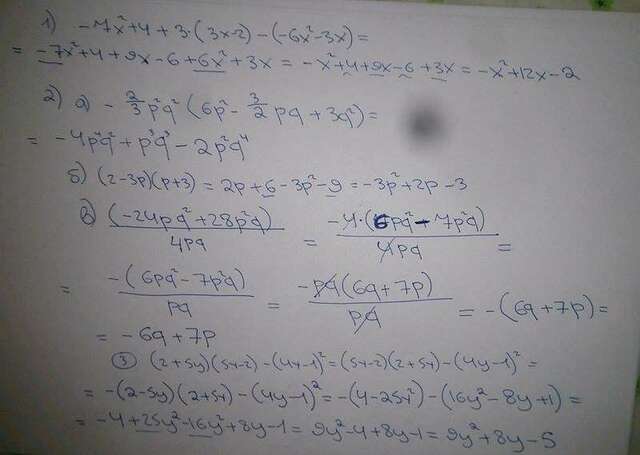 1) -7x²+4+3·(3x-2)-(-6x²-3x)=
= -7x²+4+9x-6+6x²+3x = -x²+4+9x-6+3x = -x²+12x-2
2) а) -2/3p²q²(6p²-3/2pq+3q²)=
= -4p⁴q²+p³q³-2p²q⁴
б) (2-3p)(p+3) = 2p+6-3p²-9 = -3p²+2p-3
в) (-24pq²+28p²q)/4pq = -4·(6pq²-7p²q)/4pq =
= -(6pq²-7p²q)/pq = -pq(6q+7p)/pq = -(6q+7p)=
= -6q+7p
3 (2+5y)(5y-2)-(4y-1)²=(5y-2)(2+5y)-(4y-1)²=
= -(2-5y)(2+5y)-(4y-1)² = -(4-25y²)-(16y²-8y+1)=
= -4+25y²-16y²+8y-1 = 9y²-4+8y-1 = 9y²+8y-5